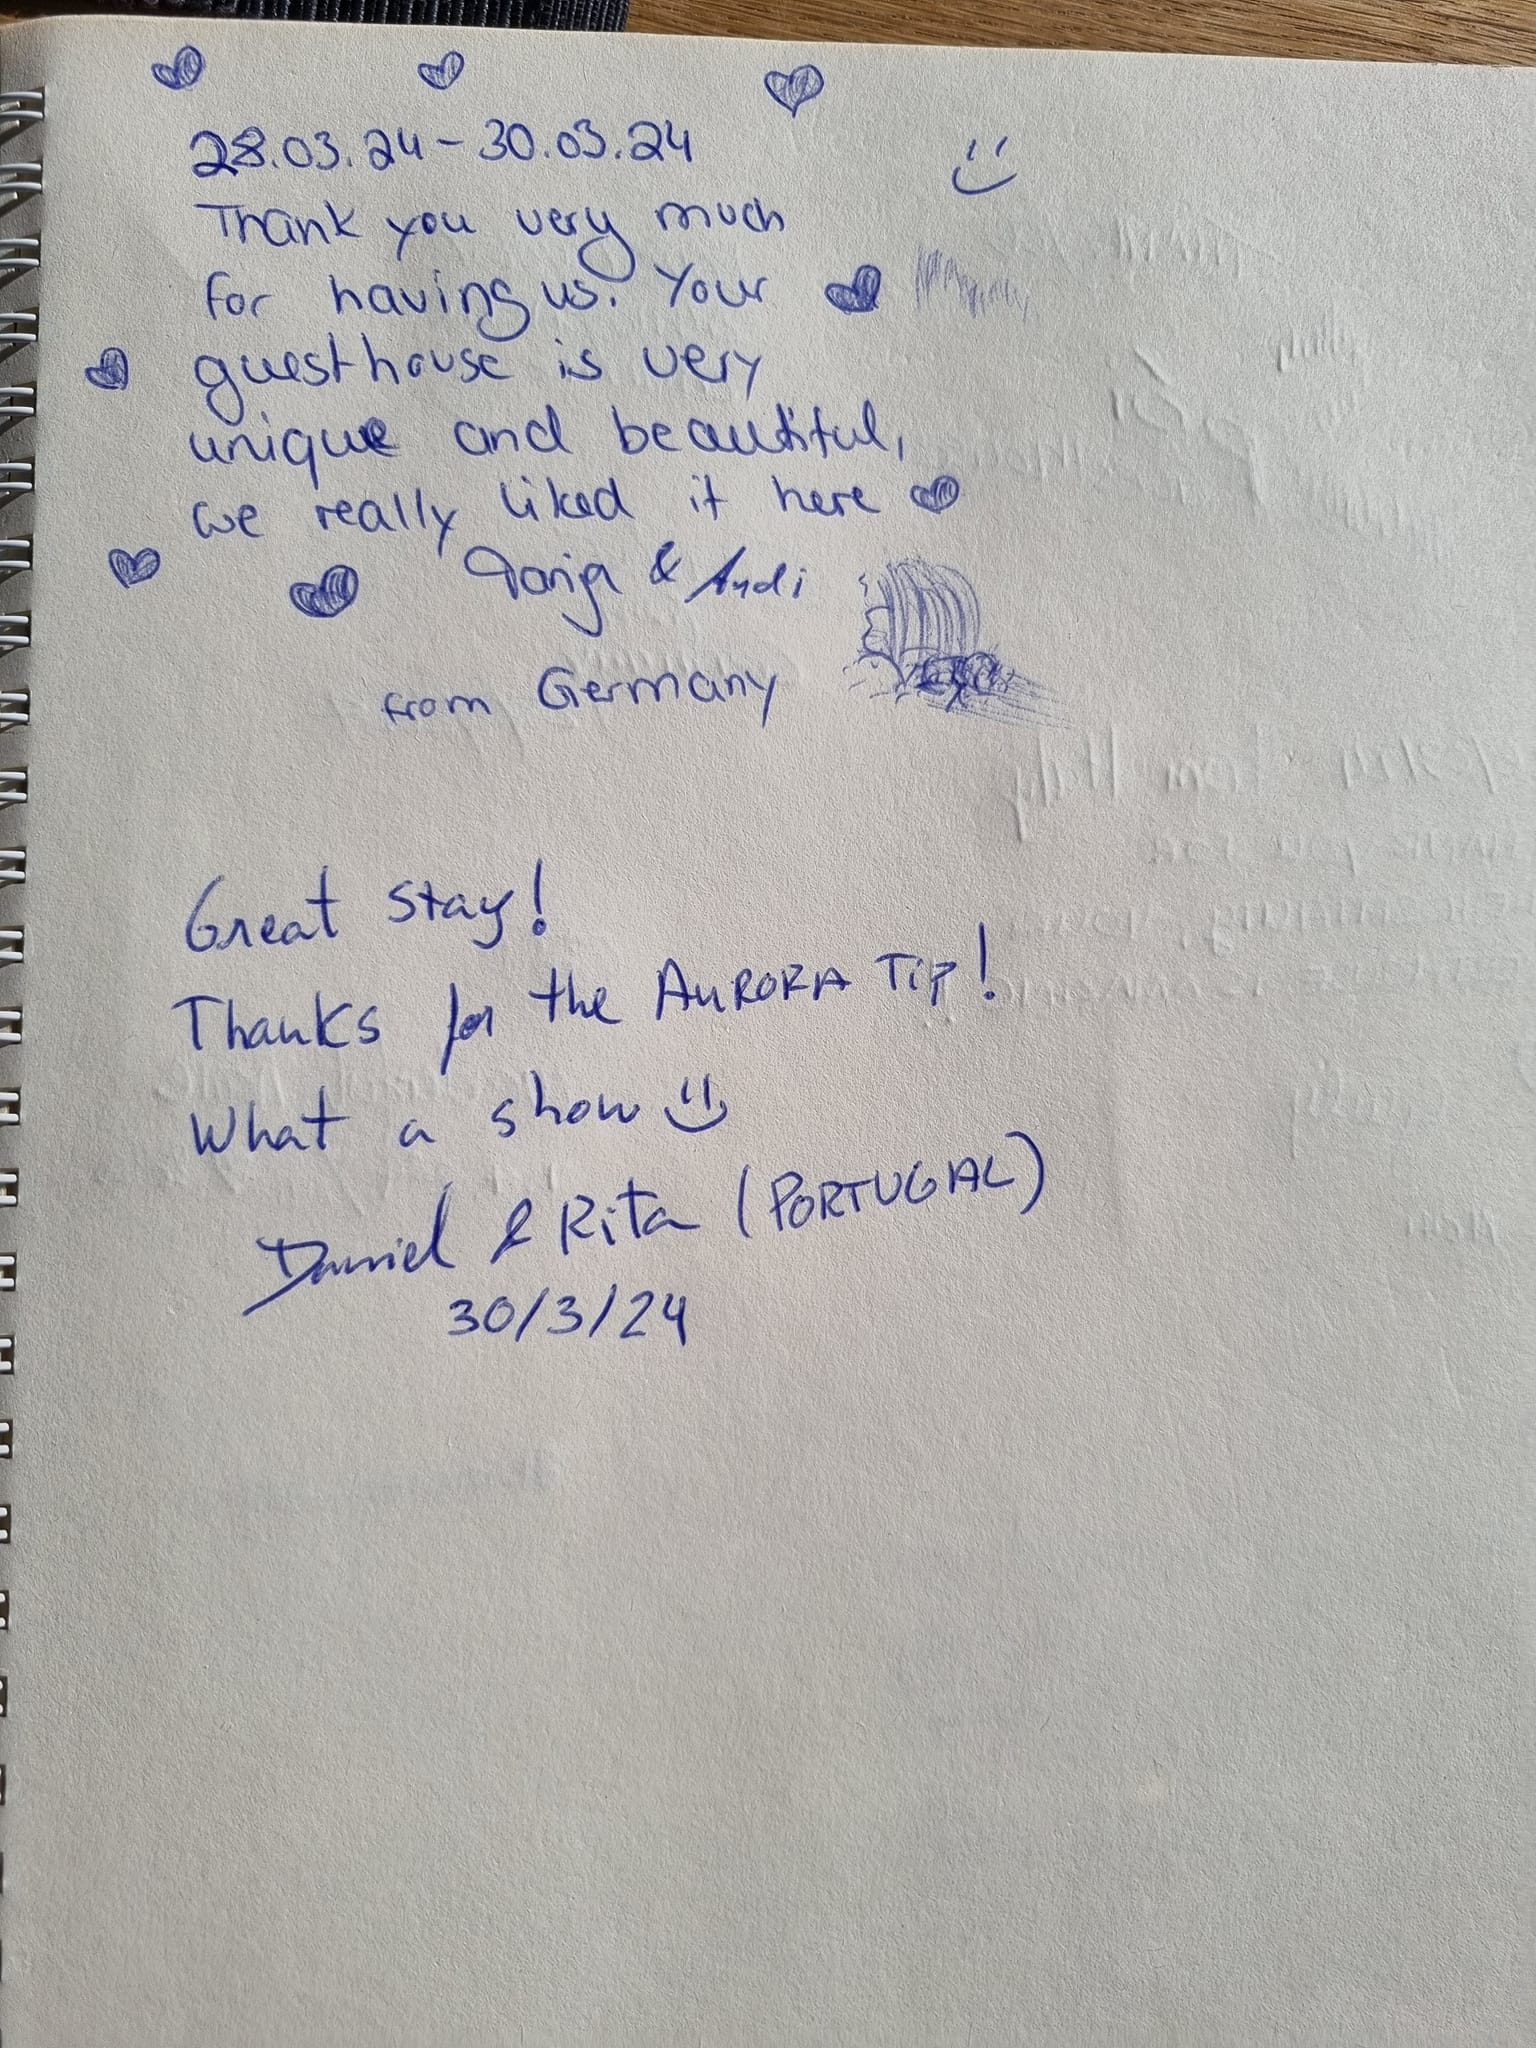 28.03.24 - 30.03.24
Thank you very much
for having us. Your
guesthouse is very
unique and beautiful,
we really liked it here
Tanja & Andi
from Germany
Great stay!
Thanks for the AURORA TiP!
What a show
Daniel & Rita (PORTUGAL)
30/3/24